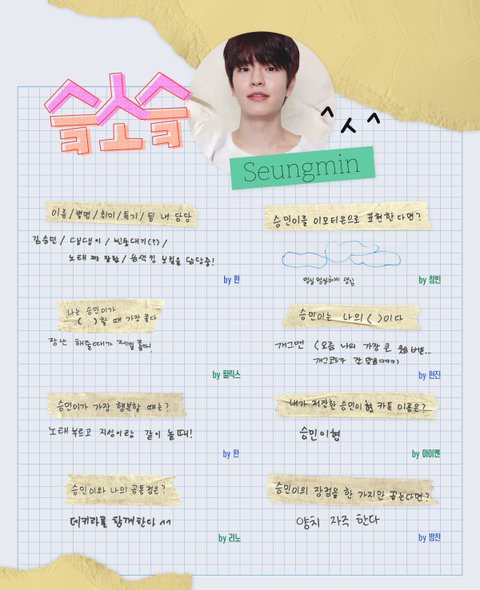 슼소슼
^ㅅ^
Seungmin
이름/별명/취미/특기/팀 내 담당
김승민 / 댕댕이 /
노래 짱 잘함 / 음색킹 보컬을 담당중!
by 한
승민이를 이모티콘으로 표현한다면?
멍실 멍실하게 생김
by 창빈
나는 승민이가
( )할 때 가장 좋다
장난 해줄때가 제일 좋아!
by 필릭스
승민이는 나의 ( )이다
개그맨 (요즘 나의 가장 큰 웃음버튼...
개그코드가 잘 맞음ㅋㅋㅋ)
by 현진
승민이가 가장 행복할 때는?
노래 부르고 지성이랑 같이 놀 때!
by 한
내가 저장한 승민이형 카톡 이름은?
승민이형
by 아이엔
승민이와 나의 공통점은?
데키라를 함께한다 ^^
by 리노
승민이의 장점을 한 가지만 꼽는다면?
양치 자주 한다
by 방찬